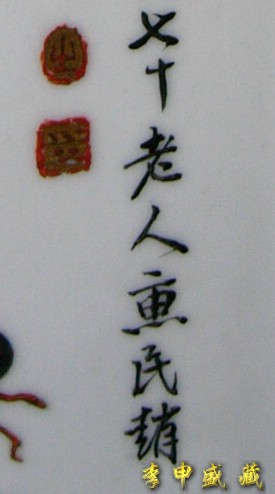 七十老人惠民趙
李申盛藏